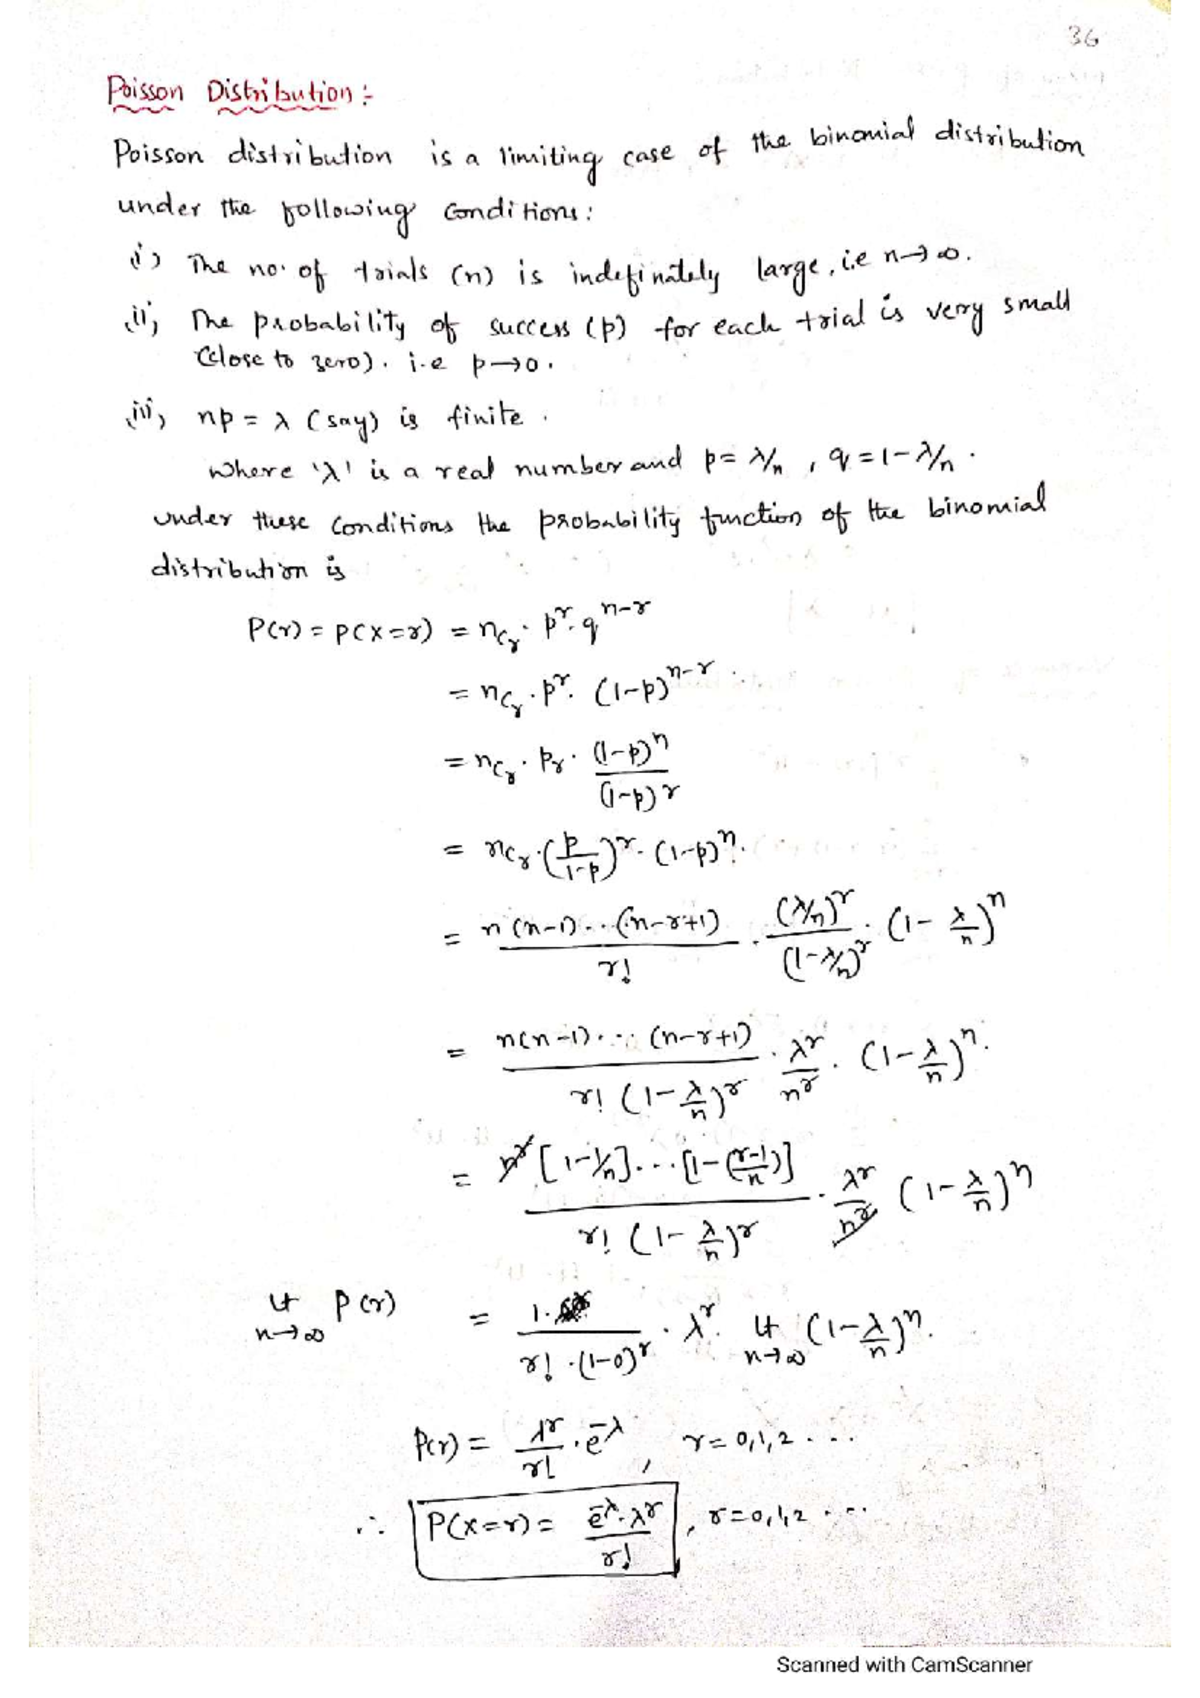 36
Poisson Distribution :-
Poisson distribution is a limiting case of the binomial distribution
under the following conditions:
(i) The no. of trials (n) is indefinately large, i.e n→∞.
(ii) The probability of success (p) for each trial is very small
(close to zero). i.e p→0.
(iii) np = λ (say) is finite.
where 'λ' is a real number and p = λ/n , q = 1-λ/n .
under these conditions the probability function of the binomial
distribution is
P(r) = P(X=r) = nCr . p^r . q^(n-r)
= nCr . p^r . (1-p)^(n-r) .
= nCr . pr . (1-p)^n / (1-p)^r
= nCr . (p/(1-p))^r . (1-p)^n .
= n(n-1)...(n-r+1) / r! . (λ/n)^r / (1-λ/n)^r . (1 - λ/n)^n
= n(n-1)....(n-r+1) / r! (1-λ/n)^r . λ^r/n^r . (1-λ/n)^n .
= n^r [1-1/n]...[1-((r-1)/n)] / r! (1-λ/n)^r . λ^r/n^r (1-λ/n)^n
Lt n→∞ P(r) = 1. / r! .(1-0)^r . λ^r . Lt n→∞ (1-λ/n)^n .
P(r) = λ^r/r! . e^-λ , r = 0,1,2 ....
∴ P(X=r) = e^-λ . λ^r / r! , r=0,1,2 ....
Scanned with CamScanner